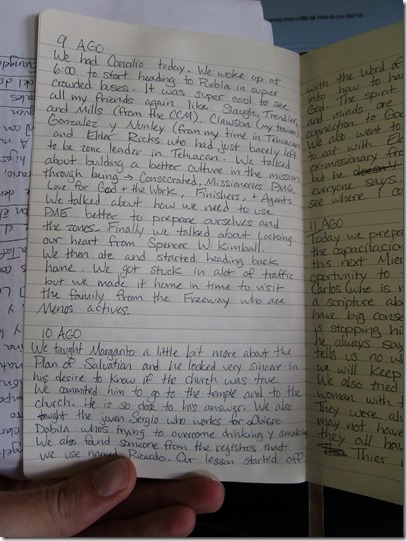 9 AGO
We had Concilio today. We woke up at
6:00 to start heading to Puebla in super
crowded buses. It was super cool to see
all my friends again like Slaugh, Trendler,
and Mills (from the CCM), Clawson (my trainer)
Gonzalez y Nunley (from my time in Tehuacan
and Elder Ricks who had just barely left
to be zone leader in Tehuacan. We talked
about building a better culture in the mission
through being → Consecrated, Missionaries PMG,
Love for God + the Work, Finishers, + Agents
We talked about how we need to use
PME better to prepare ourselves and
the zones. Finally we talked about Locking
our heart from Spencer W. Kimball.
We then ate and started heading back
home. We got stuck in alot of traffic
but we made it home in time to visit
the family from the Freeway who are
Menos activos.
10 AGO
We taught Margarito a little bit more about the
Plan of Salvation and he looked very sincere in
his desire to know if the church was true.
We commited him to go to the temple and to the
church. He is so close to his answer. We also
taught the joven Sergio who works for Obispo
Dabila who's trying to overcome drinking y smoking
We also found someone from the registros that
we use named Ricardo. Our lesson started off
with the Word of
into how to
God. The spirit
and minds are
connection to God
We also went to
to eat with
ex-missionary
but he
everyone says
see where
11 AGO
Today we prepa
the capacitacio
this next Mier
oportunity to
Carlos (who is
a scripture ab
have big conse
is stopping hi
he always say
tells us no w
we will keep
We also tried
woman with t
They were al
may not have
they all ha
Thier